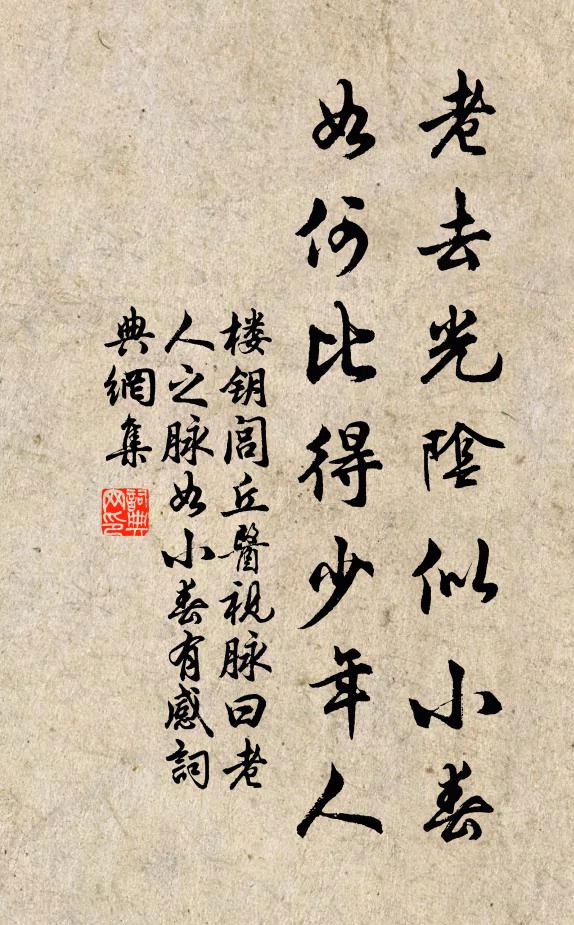 老去光陰似小春
如何比得少年人
楼钥閭丘醫視脉曰老
人之脉如小春有感詞
典網集
詞典
网印